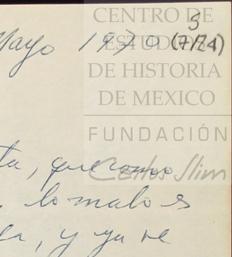 CENTRO DE
ESTUDIOS
DE HISTORIA
DE MEXICO
FUNDACIÓN
Carlos Slim
Mayo 1970
3
(7/74)
ta, que como
lo malo es
y ya ve